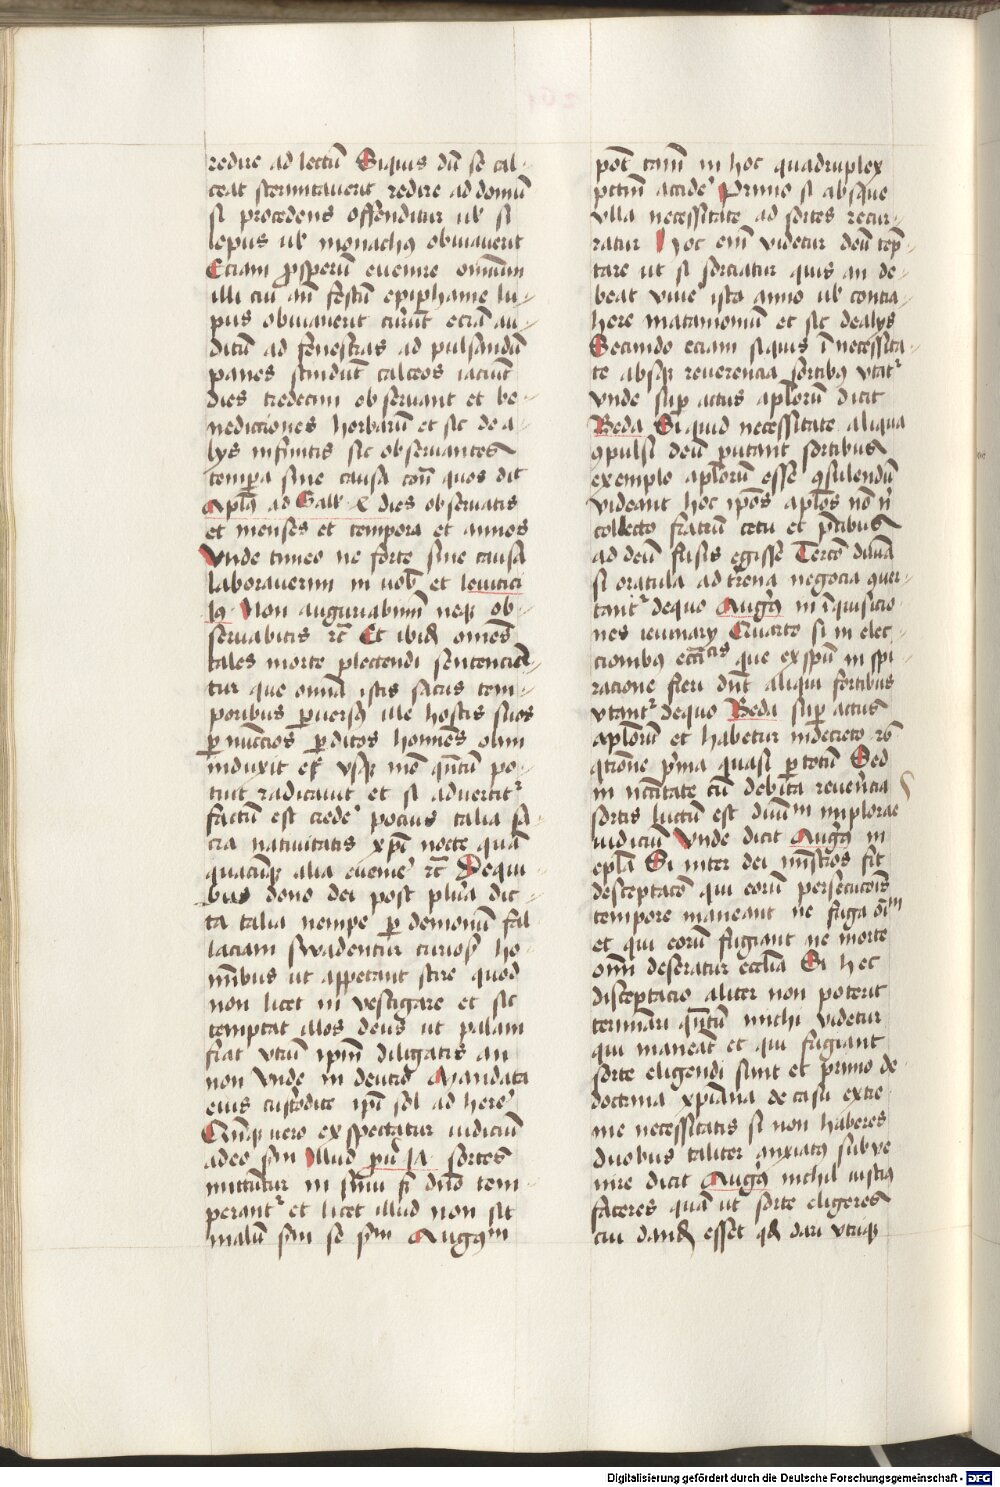 redire ad lectū Siquis dū se cal-
ceat sternutaverit redire ad domū
si procedens offenditur ul' si
lepus ul' monachꝰ obviaverit
Eciam ꝓsperū evenire omnem
illi cui an̄ festū epiphanie lu-
pus obviaverit
ditū ad fenestras ad pulsandū
panes calceos iaciūt
dies tredecim observant et be-
nedictiones herbarū et sic de a-
lys infinitis sic observantes
tempora sine causa quos dit
Apl's ad Gall' dies observatis
et menses et tempora et annos
Vnde timeo ne forte sine causa
laboraverim in vob' et levitici
Non augurabimī neqꝫ ob-
servabitis rc̄ Et ibid' omēs
tales morte plectendi sentencien-
tur que om̄ia istis sacris tem-
poribus ꝑversꝰ ille hostis suos
ꝑ nūccios ꝑditos homīes olim
induxit et vsqꝫ mō qn̄tū po-
tuit radicavit et si advertitʳ
factū est crede' pocius talia sa-
cra nativitatis xp̄i nocte quā
quacūqꝫ alia evenire rc̄ Dequi-
bus dono dei post plura dic-
ta talia nempe ꝑ demonū fal-
laciam swadentur curiosꝭ ho-
mībus ut appetant scire quod
non licet investigare et sic
temptat illos deus ut palam
fiat vtrū ip̄m diligatis an
non Vnde in deutrō Mandata
eius custodite ip̄i sol' ad here'
Cūqꝫ vero exspectatur iudiciū
a deo sm̄ illud pū' sortes
mittūtur in sinū s' a dnō tem-
perantʳ et licet illud non sit
malū sm̄ se sm̄ Augꝰm
pōt tam̄ in hoc quadruplex
pctm̄ accide' Primo si absqꝫ
vlla necessitate ad sortes recur-
ratur Hoc em̄ videtur deū tēp-
tare ut si sorciatur quis an de-
beat vive' isto anno ul' contra-
here matrimoniū et sic de alys
Secundo eciam siquis ī necessita-
te absqꝫ reverencia sortibꝰ vtatʳ
Vnde suꝑ actus apl'orū dicit
Beda Siquid necessitate aliqua
ꝯpulsi deū putant sortibus
exemplo apl'orū esse ꝯsulendū
videant hoc ip̄os apl'os nō nˡ
collecto fratrū cetu et p̄cibus
ad deū fusis egisse Tercō
si oracula ad trena negocia ꝯver-
tantʳ dequo Augꝰ in īquisicio-
nes ienuary Quarto si in elec-
cionibꝰ eccl'iasticis que ex spū in spi-
racione fieri dn̄t aliqui sortibus
vtantʳ dequo Beda suꝑ actus
apl'orū et habetur in decreto
qtione pīma quasi ꝑ totū Sed
in nc̄itate cū debita reverēcia
sortis luctū est divinum implorae
iudiciū Vnde dicit Augꝰ in
epl'a Si inter dei mīstros sit
desceptacō qui eorū persecucōis
tempore maneant ne fuga oīm
et qui eorū fugiant ne morte
om̄i deseratur eccl'ia Si hec
disceptacio aliter non poterit
terminari qn̄tū michi videtur
qui maneāt et qui fugiant
sorte eligendi sunt et primo de
doctrina xpiana de casu extre-
me necessitatis si non haberes
duobus taliter anxiatꝰ subve-
nire dicit Augꝰ nichil iustius
faceres quā ut sorte eligeres
cui dand' esset qd' dari vtriqꝫ
Digitalisierung gefördert durch die Deutsche Forschungsgemeinschaft - DFG